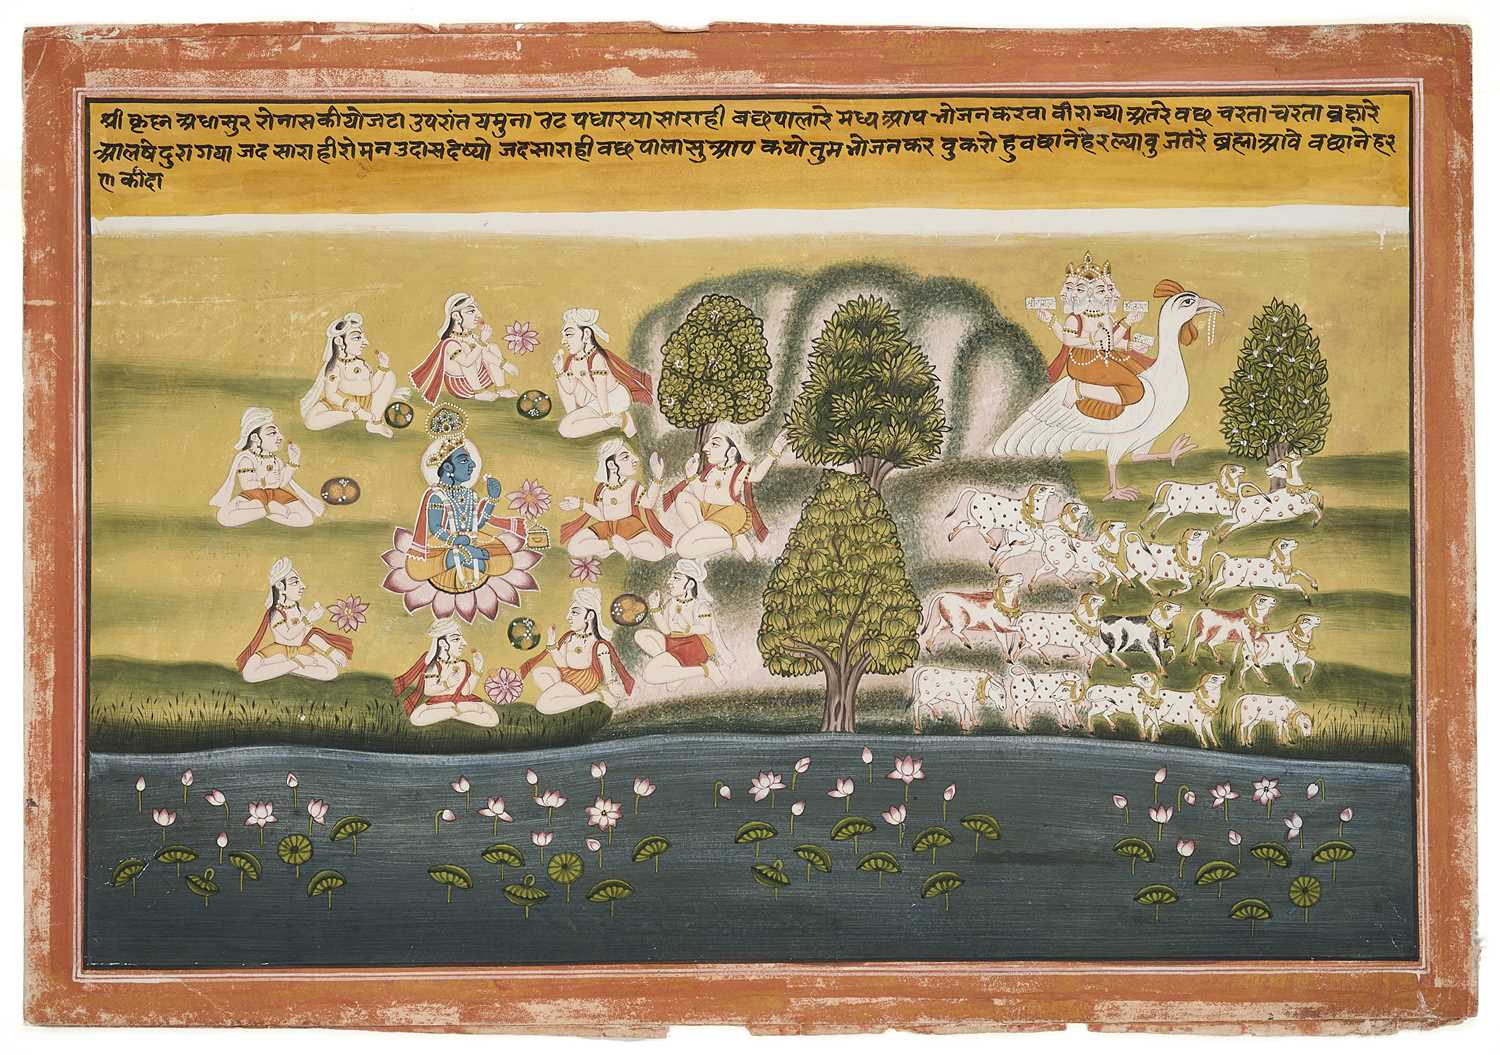 श्री कृष्न अघासुर रो नास कीयो जटा उपरांत यमुना तट पधारया सारा ही बछपालारे मध्य आप भोजन करवा वीराज्या अतरे वछ चरता चरता ब्रह्मारे
आलषे दुरा गया जद सारा ही रो मन उदास देष्यो जद सारा ही वछ पाला सु आप कयो तुम भोजन कर वु करो हु वछाने हेर ल्यावु जतरे ब्रह्मा आवे वछाने हर
ण कीदा